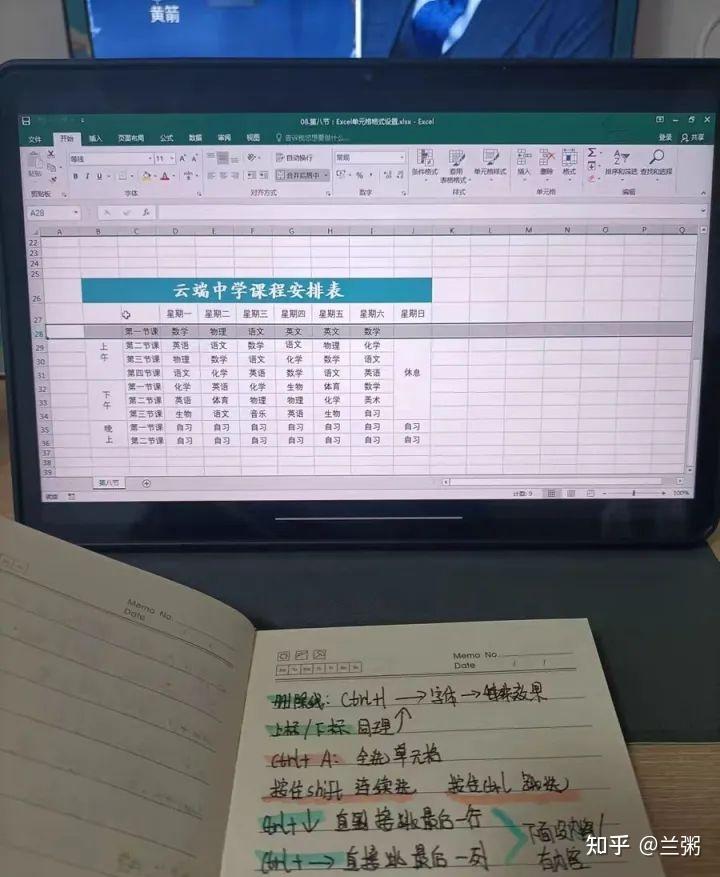 黄箭
08.第八节：Excel单元格格式设置.xlsx - Excel
文件 开始 插入 页面布局 公式 数据 审阅 视图 告诉我您想要做什么... 登录 共享
等线 11 自动换行 常规
粘贴 B I U 合并后居中 条件格式 套用表格格式 单元格样式 插入 删除 格式 排序和筛选 查找和选择
剪贴板 字体 对齐方式 数字 样式 单元格 编辑
A28 fx
A B C D E F G H I J K L M N O P Q
22
23
24
25
26 云端中学课程安排表
27 星期一 星期二 星期三 星期四 星期五 星期六 星期日
28 第一节课 数学 物理 语文 英文 英文 数学
29 上午 第二节课 英语 语文 数学 语文 物理 化学
30 第三节课 物理 数学 语文 化学 数学 语文
31 第四节课 语文 化学 英语 数学 语文 英语 休息
32 第一节课 化学 英语 化学 生物 体育 数学
33 下午 第二节课 英语 体育 物理 物理 化学 美术
34 第三节课 生物 语文 音乐 英语 生物 自习
35 晚上 第一节课 自习 自习 自习 自习 自习 自习 自习
36 第二节课 自习 自习 自习 自习 自习 自习 自习
37
38
39
第八节
就绪 计数: 9 100%
Memo No.
Date
Memo No.
Date
Mo Tu We Th Fr Sa Su
删除线: Ctrl+1 → 字体 → 特殊效果
上标/下标 同理 ↑
Ctrl+ A: 全选单元格
按住shift 连续选 按住ctrl 跳选
Ctrl+↓ 直接跳最后一行
Ctrl+ → 直接跳最后一列
下面没内容/
右内容
知乎 @兰粥